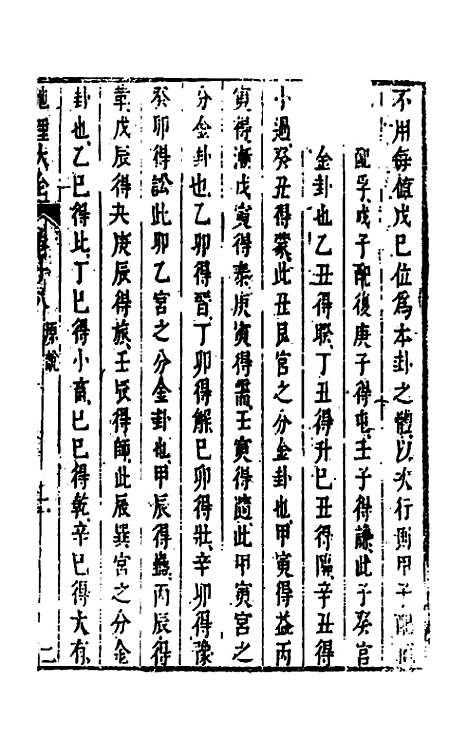 不用每值戊巳位為本卦之體以次行則甲子配
配孚戊子配復庚子得屯壬子得謙此子癸宫
金卦也乙丑得睽丁丑得升巳丑得臨辛丑得
小過癸丑得蒙此丑艮宫之分金卦也甲寅得益丙
寅得漸戊寅得泰庚寅得需壬寅得隨此甲寅宫之
分金卦也乙卯得晉丁卯得解巳卯得壯辛卯得豫
癸卯得訟此卯乙宫之分金卦也甲辰得蠱丙辰得
革戊辰得夬庚辰得旅壬辰得師此辰巽宫之分金
卦也乙巳得比丁巳得小畜巳巳得乾辛巳得大有
地理大全
原說
二